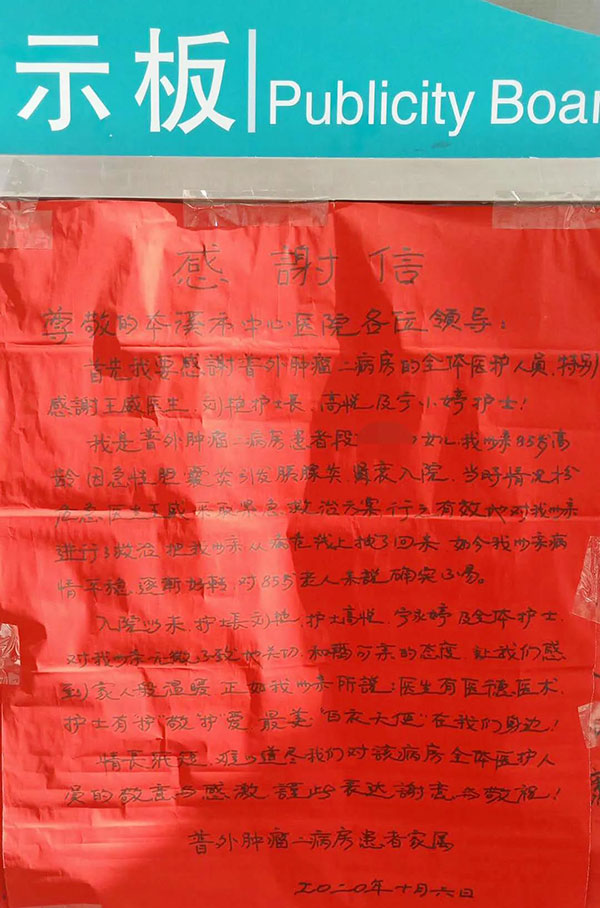 示板 Publicity Boar
感謝信
尊敬的本溪市中心医院各位领导：
首先我要感謝普外肿瘤二病房的全体医护人员，特别
感謝王威医生、刘艳护士長、高悦及宁小婷护士！
我是普外肿瘤二病房患者段 女儿，我母亲85岁高
龄因急性胆囊炎引发胰腺炎、肾衰入院，当时情况
危急，医生王威采取果急救治方案行之有效地对我母亲
进行了救治，把我母亲从病危线上拽了回来，如今我母亲病
情平稳，逐渐好轉，对85岁老人来説确实不易。
入院以来，护士長刘艳，护士高悦、宁小婷及全体护士
对我母亲无微不致地关切，和藹可亲的态度，让我们感
到家人般温暖，正如我母亲所說：医生有医德医术，
护士有护"敬"护"爱"，最美"白衣天使"在我们身边！
情長纸短，难以道尽我们对該病房全体医护人
员的敬意与感激，謹此表达謝意与敬禮！
普外肿瘤二病房患者家属
二〇二〇年十月六日